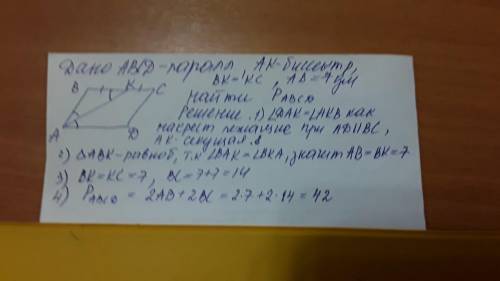 Дано ABCD-паралл, AK-биссектр,
BK=KC, AB=7см
B K C
найти PABCD
Решение. 1) ∠DAK=∠AKB как
A D
накрест лежащие при AD||BC,
AK-секущая.
2) △ABK-равноб, т.к ∠BAK=∠BKA, значит AB=BK=7
3) BK=KC=7, BC=7+7=14
4) PABCD = 2AB+2BC=2·7+2·14=42